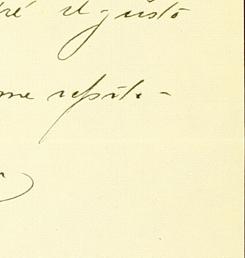 ré el gusto
me repito-